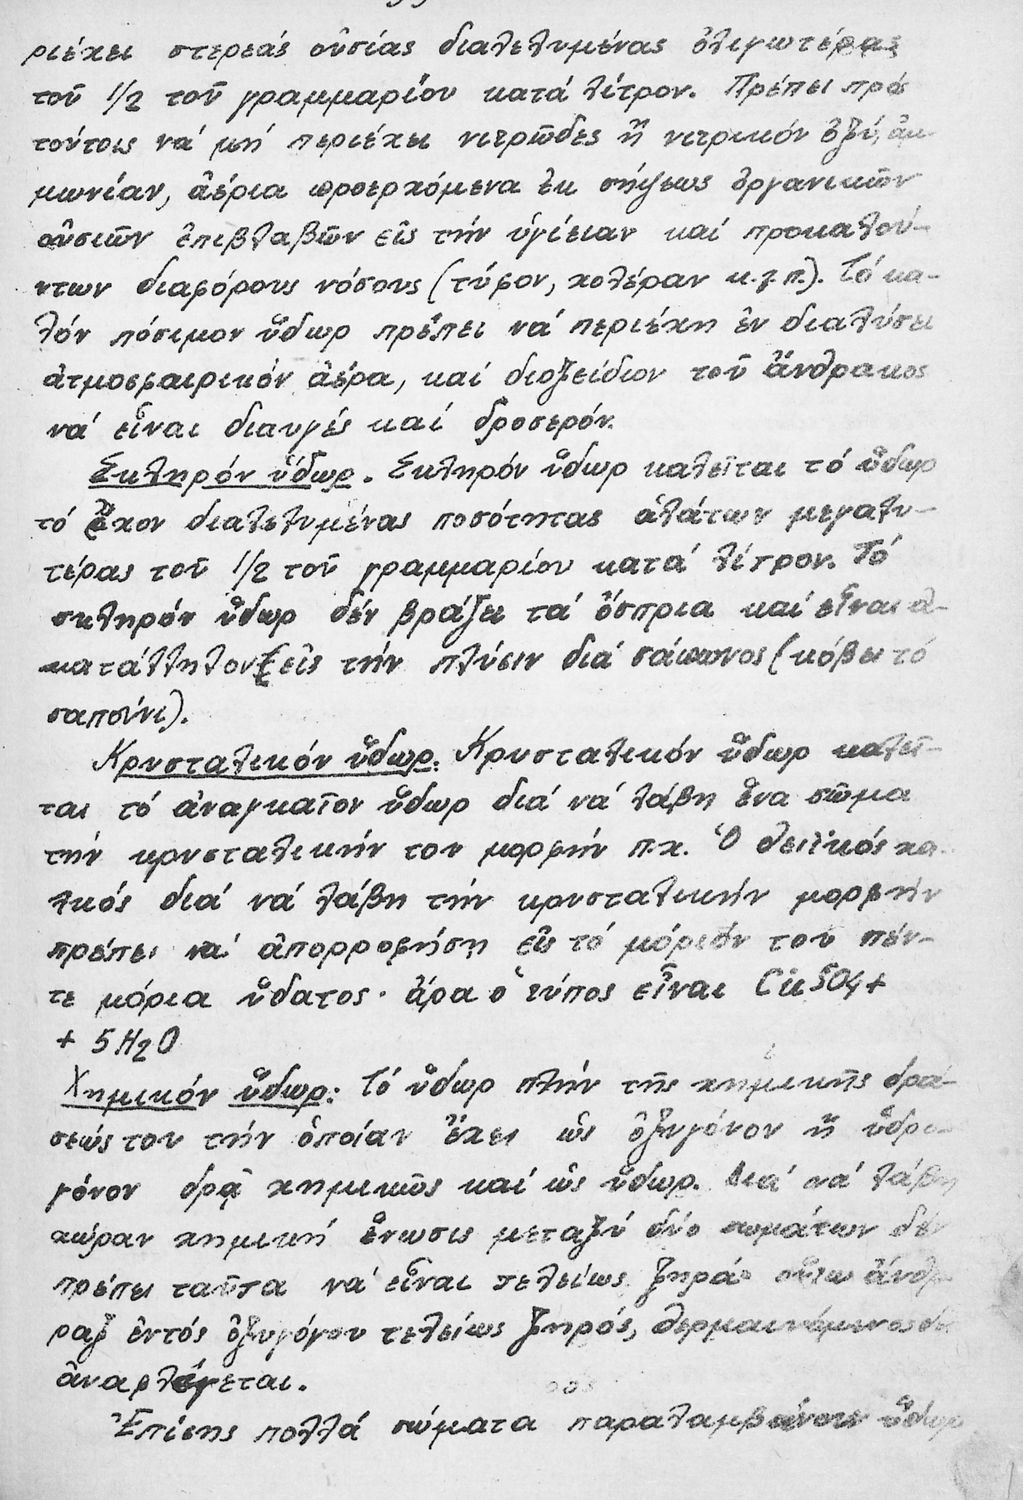 ριέχει στερεάς οὐσίας διαλελυμένας ὀλιγωτέρας
τοῦ 1/2 τοῦ γραμμαρίου κατά λίτρον. Πρέπει πρός
τούτοις νά μή περιέχει νιτρῶδες ἤ νιτρικόν ὀξύ, ἀμ-
μωνίαν, ἀέρια προερχόμενα ἐκ σήψεως ὀργανικῶν
οὐσιῶν ἐπιβλαβῶν εἰς τήν ὑγίειαν καί προκαλού-
ντων διαφόρους νόσους (τύφον, χολέραν κ.λ.π.). Τό κα-
λόν πόσιμον ὕδωρ πρέπει νά περιέχη ἐν διαλύσει
ἀτμοσφαιρικόν ἀέρα, καί διοξείδιον τοῦ ἄνθρακος
νά εἶναι διαυγές καί δροσερόν.
Σκληρόν ὕδωρ. Σκληρόν ὕδωρ καλεῖται τό ὕδωρ
τό ἔχον διαλελυμένας ποσότητας ἁλάτων μεγαλυ-
τέρας τοῦ 1/2 τοῦ γραμμαρίου κατά λίτρον. Τό
σκληρόν ὕδωρ δέν βράζει τά ὄσπρια καί εἶναι ἀ-
κατάλληλον εἰς τήν πλύσιν διά σάπωνος (κόβει τό
σαπούνι).
Κρυσταλικόν ὕδωρ. Κρυσταλικόν ὕδωρ καλεῖ-
ται τό ἀναγκαῖον ὕδωρ διά νά λάβη ἕνα σῶμα
τήν κρυσταλικήν του μορφήν π.χ. Ὁ θειϊκός χα-
λκός διά νά λάβη τήν κρυσταλικήν μορφήν
πρέπει νά ἀπορροφήση εἰς τό μόριόν του πέν-
τε μόρια ὕδατος· ἄρα ὁ τύπος εἶναι CuSO4+
+ 5H2O
Χημικόν ὕδωρ: Τό ὕδωρ πλήν τῆς χημικῆς δρά-
σεώς του τήν ὁποίαν ἔχει ὡς ὀξυγόνον ἤ ὑδρο-
γόνον δρᾷ χημικῶς καί ὡς ὕδωρ. Διά νά λάβη
χώραν χημική ἕνωσις μεταξύ δύο σωμάτων δέν
πρέπει ταῦτα νά εἶναι τελείως ξηρά· οὕτω ἄνθ
ραξ ἐντός ὀξυγόνου τελείως ξηρός, θερμαινόμενος δέν
ἀναφλέγεται.
Ἐπίσης πολλά σώματα παραλαμβάνουν ὕδωρ